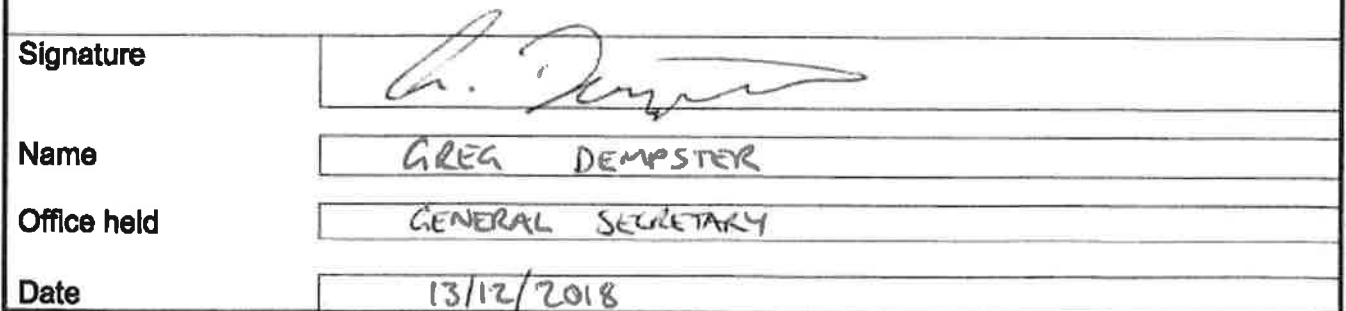 Signature G. Dempster
Name GREG DEMPSTER
Office held GENERAL SECRETARY
Date 13/12/2018